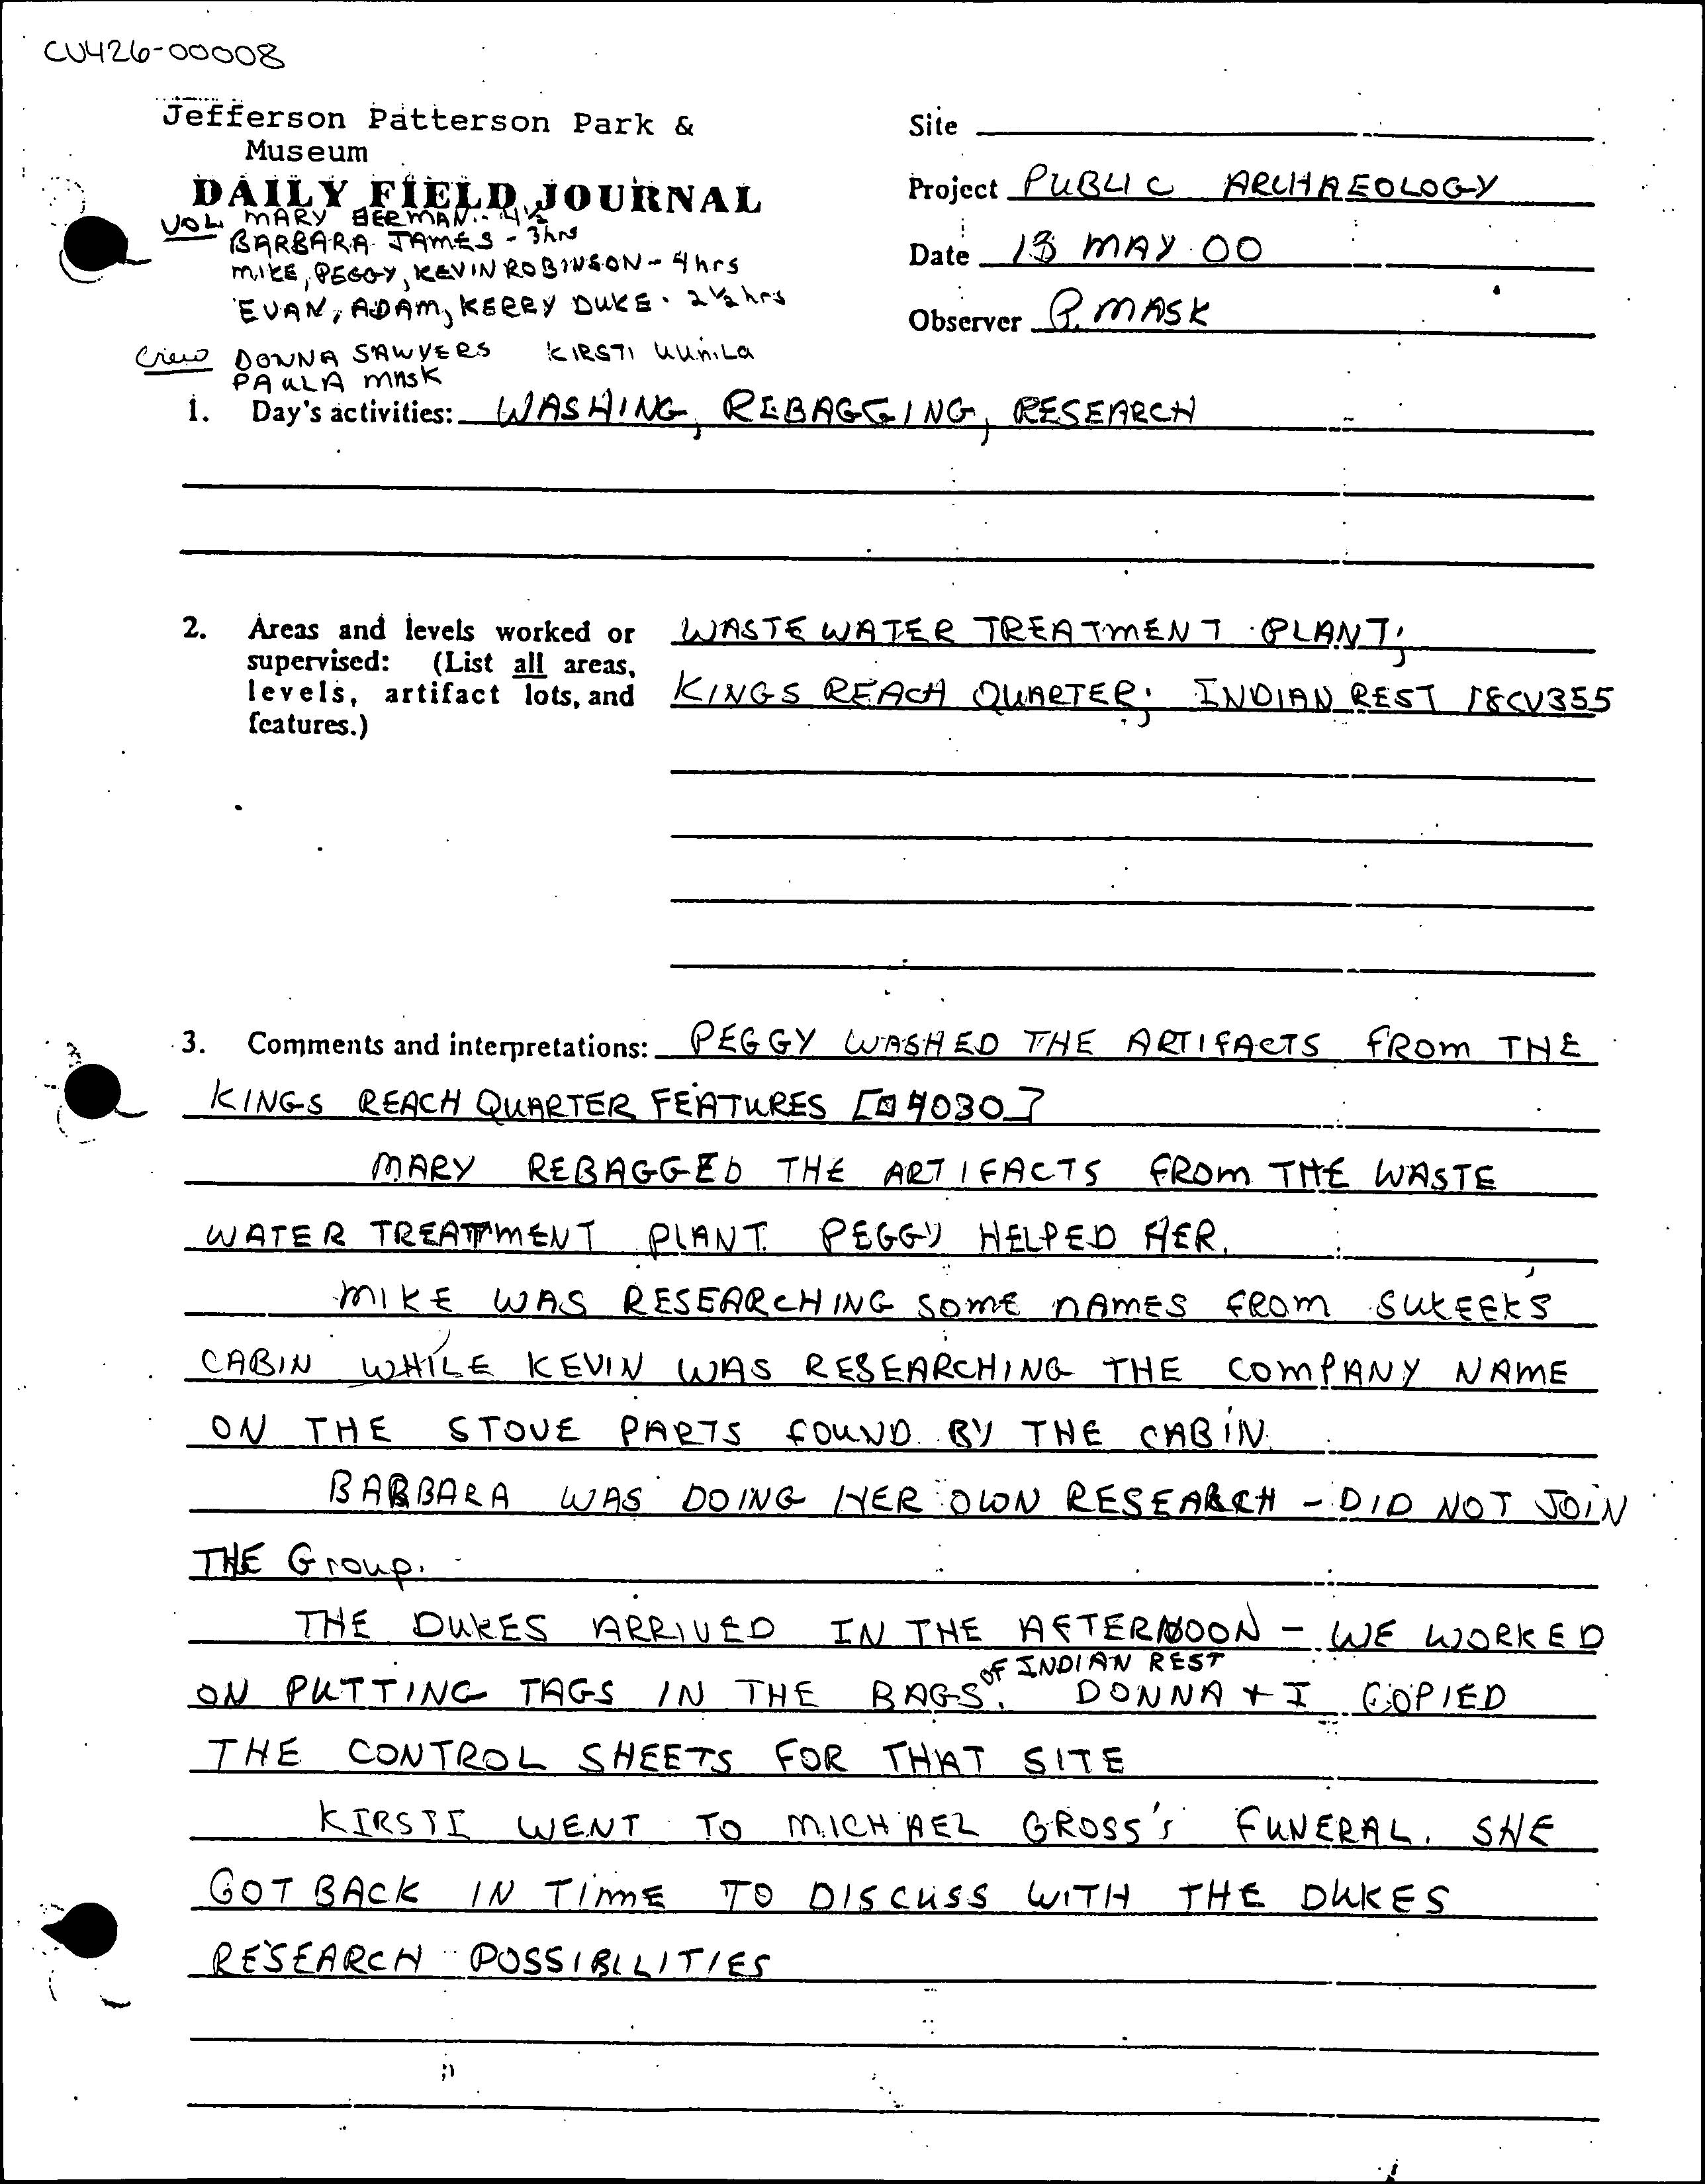 CV426-00008
Jefferson Patterson Park &
Museum
DAILY FIELD JOURNAL
VOL. MARY BERMAN - 4½
BARBARA JAMES - 3hrs
MIKE, PEGGY, KEVIN ROBINSON - 4 hrs
EVAN, ADAM, KERRY DUKE. 2½ hrs
Crew DONNA SAWYERS KIRSTI UUNILA
PAULA MASK
Site
Project PUBLIC ARCHAEOLOGY
Date 13 MAY 00
Observer P. MASK
1. Day's activities: WASHING, REBAGGING, RESEARCH
2. Areas and levels worked or
supervised: (List all areas,
levels, artifact lots, and
features.)
WASTE WATER TREATMENT PLANT;
KINGS REACH QUARTER; INDIAN REST 18CV355
3. Comments and interpretations: PEGGY WASHED THE ARTIFACTS FROM THE
KINGS REACH QUARTER FEATURES [4030]
MARY REBAGGED THE ARTIFACTS FROM THE WASTE
WATER TREATMENT PLANT. PEGGY HELPED HER.
MIKE WAS RESEARCHING SOME NAMES FROM SUKEEK'S
CABIN WHILE KEVIN WAS RESEARCHING THE COMPANY NAME
ON THE STOVE PARTS FOUND BY THE CABIN.
BARBARA WAS DOING HER OWN RESEARCH - DID NOT JOIN
THE Group.
THE DUKES ARRIVED IN THE AFTERNOON - WE WORKED
ON PUTTING TAGS IN THE BAGS OF INDIAN REST. DONNA + I COPIED
THE CONTROL SHEETS FOR THAT SITE
KIRSTI WENT TO MICHAEL GROSS'S FUNERAL. SHE
GOT BACK IN TIME TO DISCUSS WITH THE DUKES
RESEARCH POSSIBILITIES